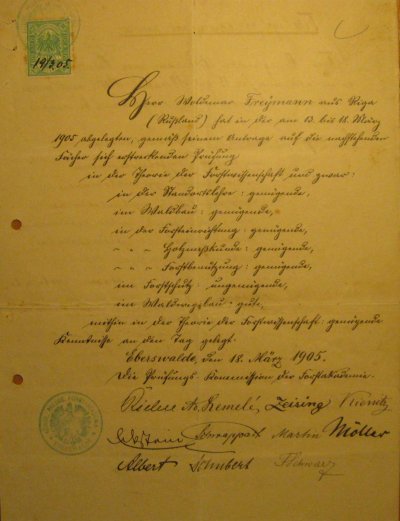 19/3.05.
Herr Woldemar Freymann aus Riga
(Rußland) hat in der am 13. bis 18. März
1905 abgelegten, gemäß seinem Antrage auf die nachstehenden
Fächer sich erstreckenden Prüfung
in der Theorie der Forstwissenschaft und zwar:
in der Standortslehre: genügende,
im Waldbau: genügende,
in der Forsteinrichtung: genügende,
" " Holzmeßkunde: genügende,
" " Forstbenutzung: genügende,
im Forstschutz: ungenügende,
im Waldwegebau: gute,
mithin in der Theorie der Forstwissenschaft: genügende
Kenntnisse an den Tag gelegt.
Eberswalde, den 18. März 1905.
Die Prüfungs-Kommission der Forstakademie.
Remelé, Zeising Kienitz
Eckstein Schwappach Martin Möller
Albert Schubert Schwarz